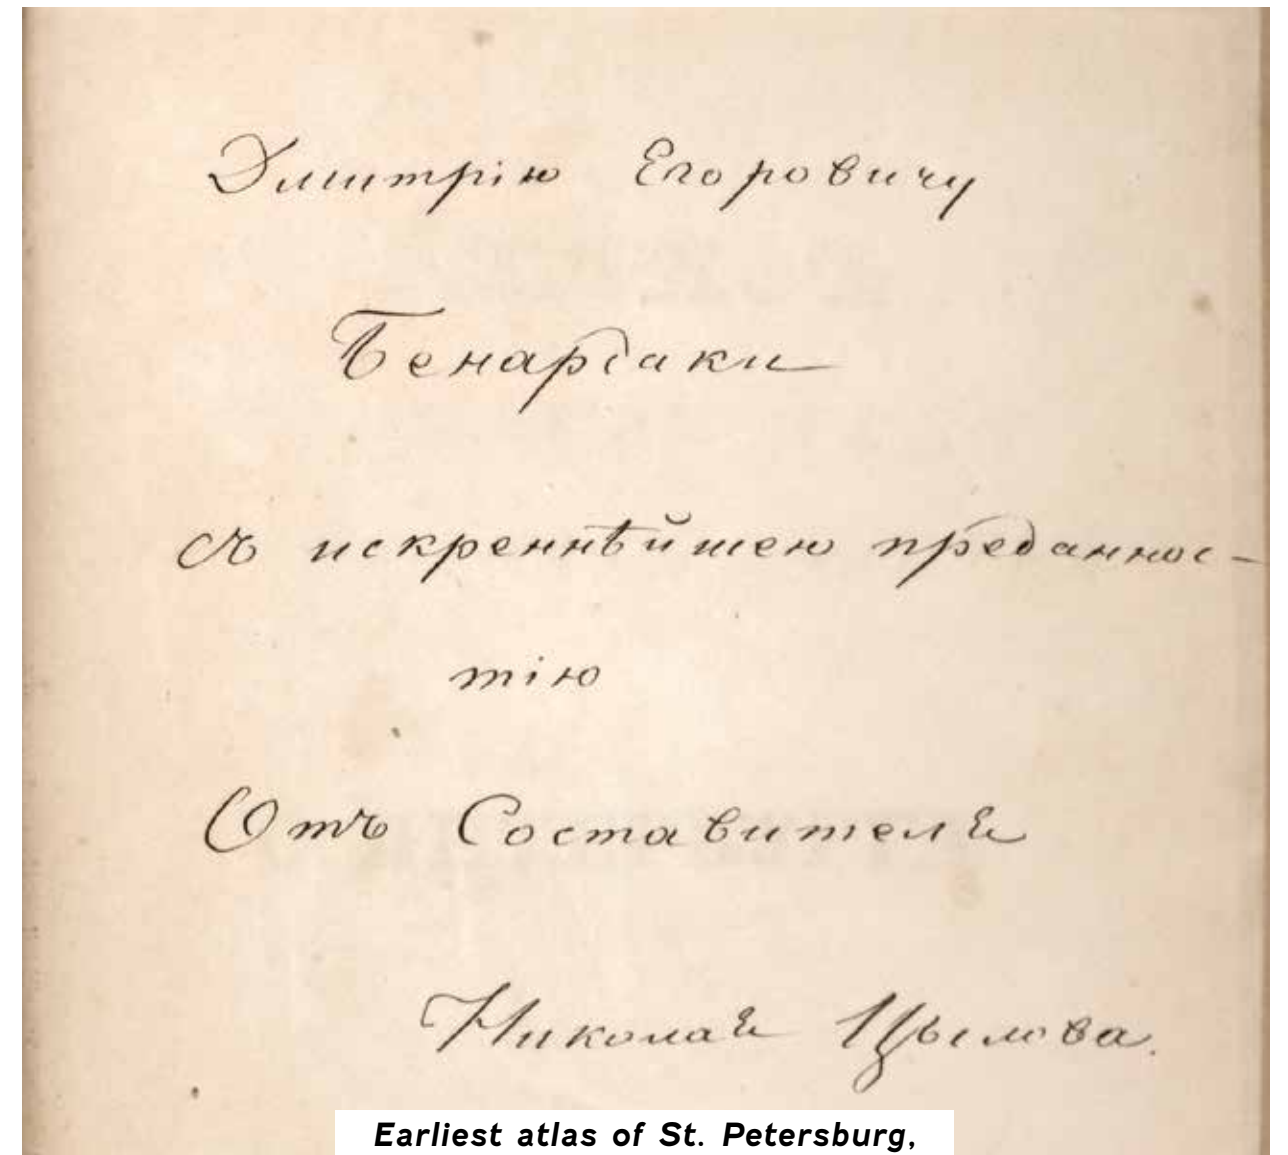 Дмитрію Егоровичу
Бенардаки
съ искреннѣйшею преданнос-
тію
Отъ Составителя
Николая Цылова.
Earliest atlas of St. Petersburg,